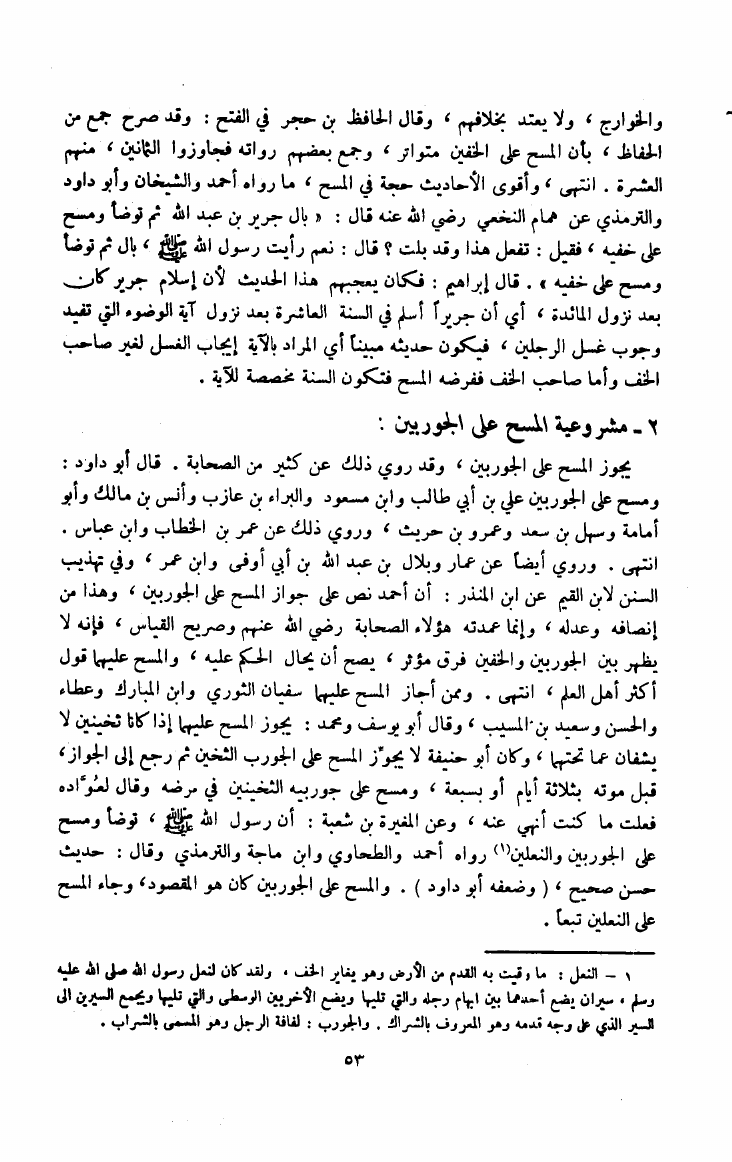 والخوارج ، ولا يعتد بخلافهم ، وقال الحافظ بن حجر في الفتح : وقد صرح جمع من
الحفاظ ، بأن المسح على الخفين متواتر ، وجمع بعضهم رواته فجاوزوا الثمانين ، منهم
العشرة . انتهى ، وأقوى الأحاديث حجة في المسح ، ما رواه أحمد والشيخان وأبو داود
والترمذي عن همام النخعي رضي الله عنه قال : « بال جرير بن عبد الله ثم توضأ ومسح
على خفيه ، فقيل : تفعل هذا وقد بلت ؟ قال : نعم رأيت رسول الله ﷺ ، بال ثم توضأ
ومسح على خفيه » . قال إبراهيم : فكان يعجبهم هذا الحديث لأن إسلام جرير كان
بعد نزول المائدة ، أي أن جريراً أسلم في السنة العاشرة بعد نزول آية الوضوء التي تفيد
وجوب غسل الرجلين ، فيكون حديثه مبيناً أي المراد بالآية إيجاب الغسل لغير صاحب
الخف وأما صاحب الخف ففرضه المسح فتكون السنة مخصصة للآية .
٢ ـ مشروعية المسح على الجوربين :
يجوز المسح على الجوربين ، وقد روي ذلك عن كثير من الصحابة . قال أبو داود :
ومسح على الجوربين علي بن أبي طالب وابن مسعود والبراء بن عازب وأنس بن مالك وأبو
أمامة وسهل بن سعد وعمرو بن حريث ، وروي ذلك عن عمر بن الخطاب وابن عباس .
انتهى . وروي أيضاً عن عمار وبلال بن عبد الله بن أبي أوفى وابن عمر ، وفي تهذيب
السنن لابن القيم عن ابن المنذر : أن أحمد نص على جواز المسح على الجوربين ، وهذا من
إنصافه وعدله ، وإنما عمدته هؤلاء الصحابة رضي الله عنهم وصريح القياس ، فإنه لا
يظهر بين الجوربين والخفين فرق مؤثر ، يصح أن يحال الحكم عليه ، والمسح عليهما قول
أكثر أهل العلم ، انتهى . وممن أجاز المسح عليهما سفيان الثوري وابن المبارك وعطاء
والحسن وسعيد بن المسيب ، وقال أبو يوسف ومحمد : يجوز المسح عليهما إذا كانا ثخينين لا
يشفان عما تحتهما ، وكان أبو حنيفة لا يجوّز المسح على الجورب الثخين ثم رجع إلى الجواز،
قبل موته بثلاثة أيام أو بسبعة ، ومسح على جوربيه الثخينين في مرضه وقال لعُوّاده
فعلت ما كنت أنهي عنه ، وعن المغيرة بن شعبة : أن رسول الله ﷺ ، توضأ ومسح
على الجوربين والنعلين(١) رواه أحمد والطحاوي وابن ماجة والترمذي وقال : حديث
حسن صحيح ، ( وضعفه أبو داود ) . والمسح على الجوربين كان هو المقصود، وجاء المسح
على النعلين تبعاً .
١ – النعل : ما وقيت به القدم من الأرض وهو يغاير الخف ، ولقد كان لنعل رسول الله صلى الله عليه
وسلم ، سيران يضع أحدهما بين ابهام رجله والتي تليها ويضع الأخريين الوسطى والتي تليها ويجمع السيرين الى
السير الذي على وجه قدمه وهو المعروف بالشراك . والجورب : لفافة الرجل وهو المسمى بالشراب .
٥٣